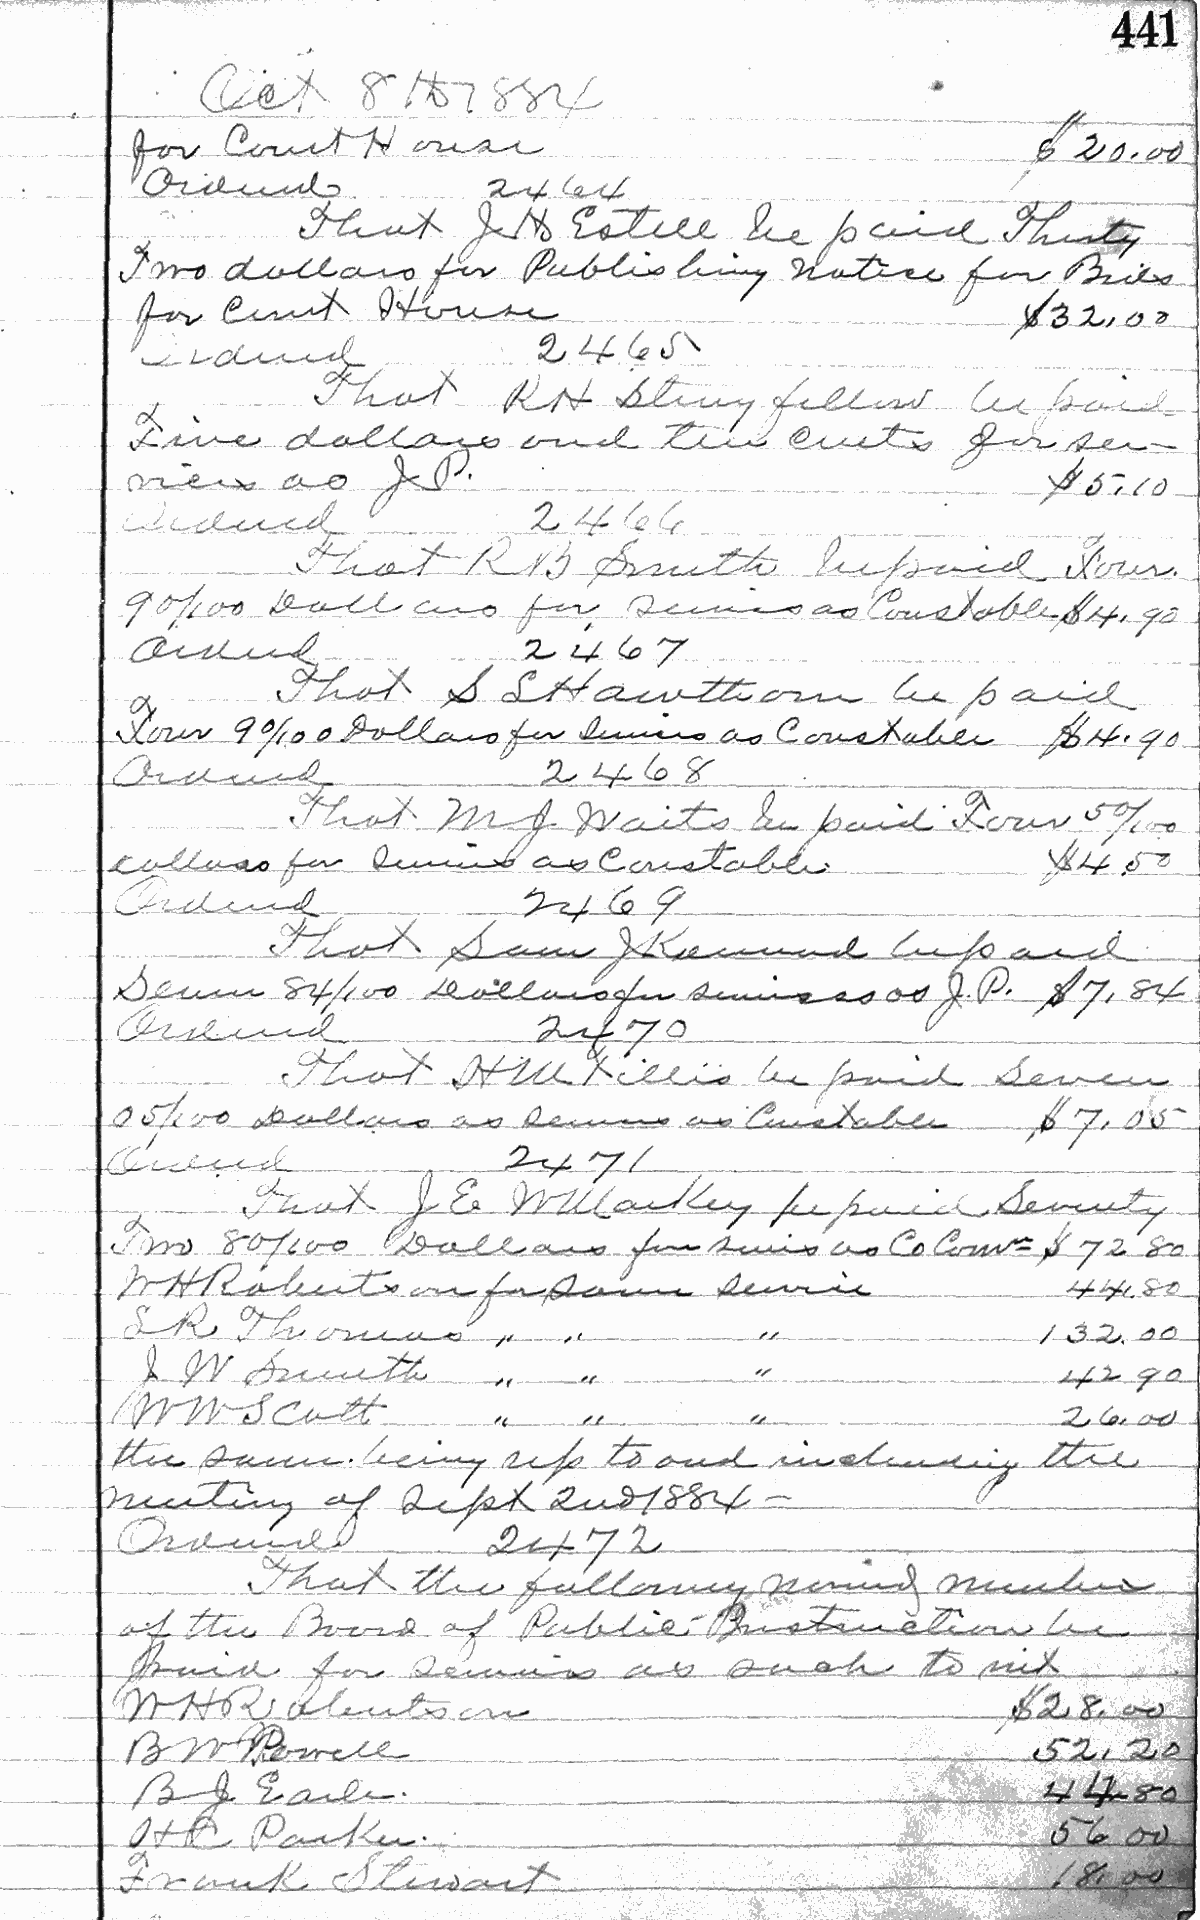 441
Oct 8th 1884
for Court House $20.00
Ordered 2464
That J H Estell be paid Thirty
Two dollars for Publishing notice for Bids
for Court House $32.00
Ordered 2465
That R H Stringfellow be paid
Five dollars and ten cents for ser-
vices as J.P. $5.10
Ordered 2466
That R B Smith be paid Four
90/100 Dollars for services as Constable $4.90
Ordered 2467
That S L Hawthorn be paid
Four 90/100 Dollars for services as Constable $4.90
Ordered 2468
That M J Waits be paid Four 50/100
dollars for services as Constable $4.50
Ordered 2469
That Sam J Kennard be paid
Seven 84/100 Dollars for services as J.P. $7.84
Ordered 2470
That H M Tillis be paid Seven
05/100 Dollars as services as Constable $7.05
Ordered 2471
That J E W be paid Seventy
Two 80/100 Dollars for services as Co Comr $72 80
W H Robertson for same service 44.80
S R Thomas " " " 132.00
J W Smith " " " 42 90
W W Scott " " " 26.00
the same being up to and including the
meeting of Sept 2nd 1884 –
Ordered 2472
That the following named member
of the Board of Public Instruction be
paid for services as such to wit
W H Robertson $28.00
B W Powell 52.20
B J Earle. 44.80
H C Parker. 56 00
Frank Stewart 18.00